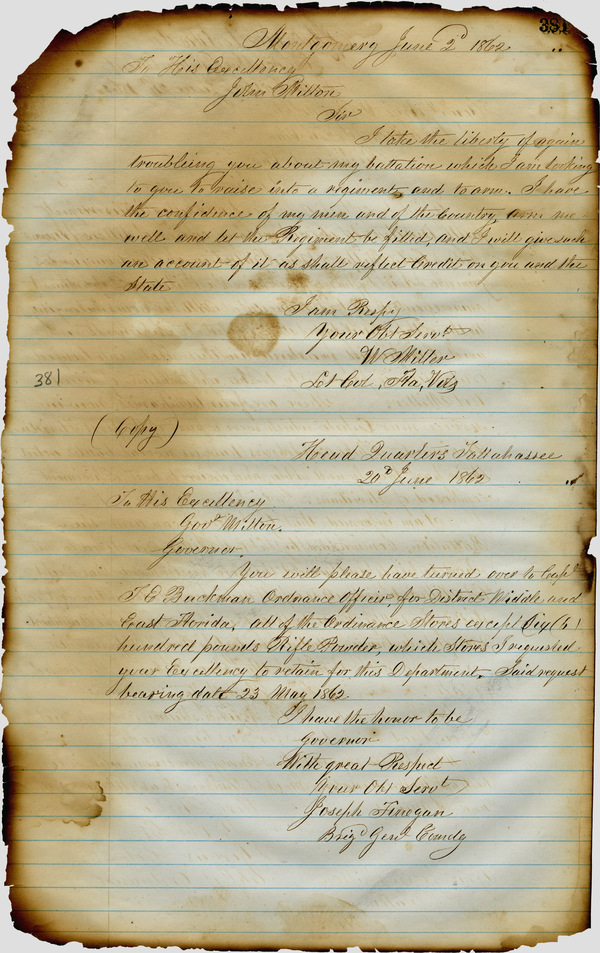 381
Montgomery June 2d 1862
To His Excellency
John Milton
Sir
I take the liberty of again
troubling you about my battalion which I am looking
to you to raise into a regiment and to arm. I have
the confidence of my men and of the Country, arm me
well and let the Regiment be filled, and I will give such
an account of it as shall reflect Credit on you and the
State
I am Respy
Your Obt Servt
W Miller
Lt Col, Fla, Vols
381
(Copy)
Head Quarters Tallahassee
20th June 1862
To His Excellency
Govr Milton.
Governor.
You will please have turned over to Capt
T E Buckman Ordnance Officer, for District Middle and
East Florida, all of the Ordinance Stores except Six (6)
hundred pounds Rifle Powder, which Stores I requested
your Excellency to retain for this Department. Said request
bearing date 23 May 1862
I have the honor to be
Governor
With great Respect
Your Obt Servt
Joseph Finegan
Brigd Genl Comdg